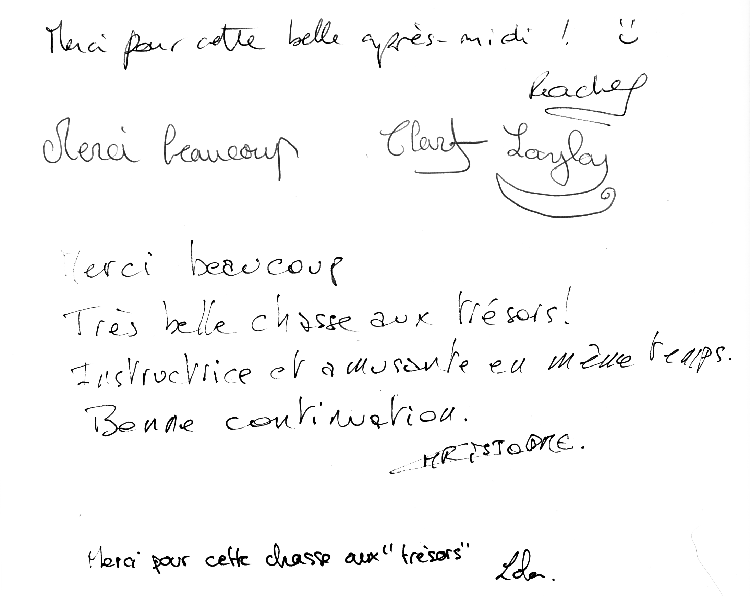 Merci pour cette belle après-midi ! :)
Rachel
Merci beaucoup
Merci beaucoup
Très belle chasse aux trésors!
Instructrice et amusante en même temps.
Bonne continuation.
Merci pour cette chasse aux "trésors"